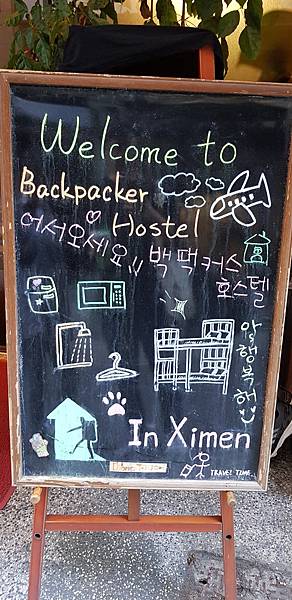 Welcome to
Backpacker
Hostel
어서오세요!! 백팩커스
호스텔
앙 행복해
In Ximen
TRAVEL TIME